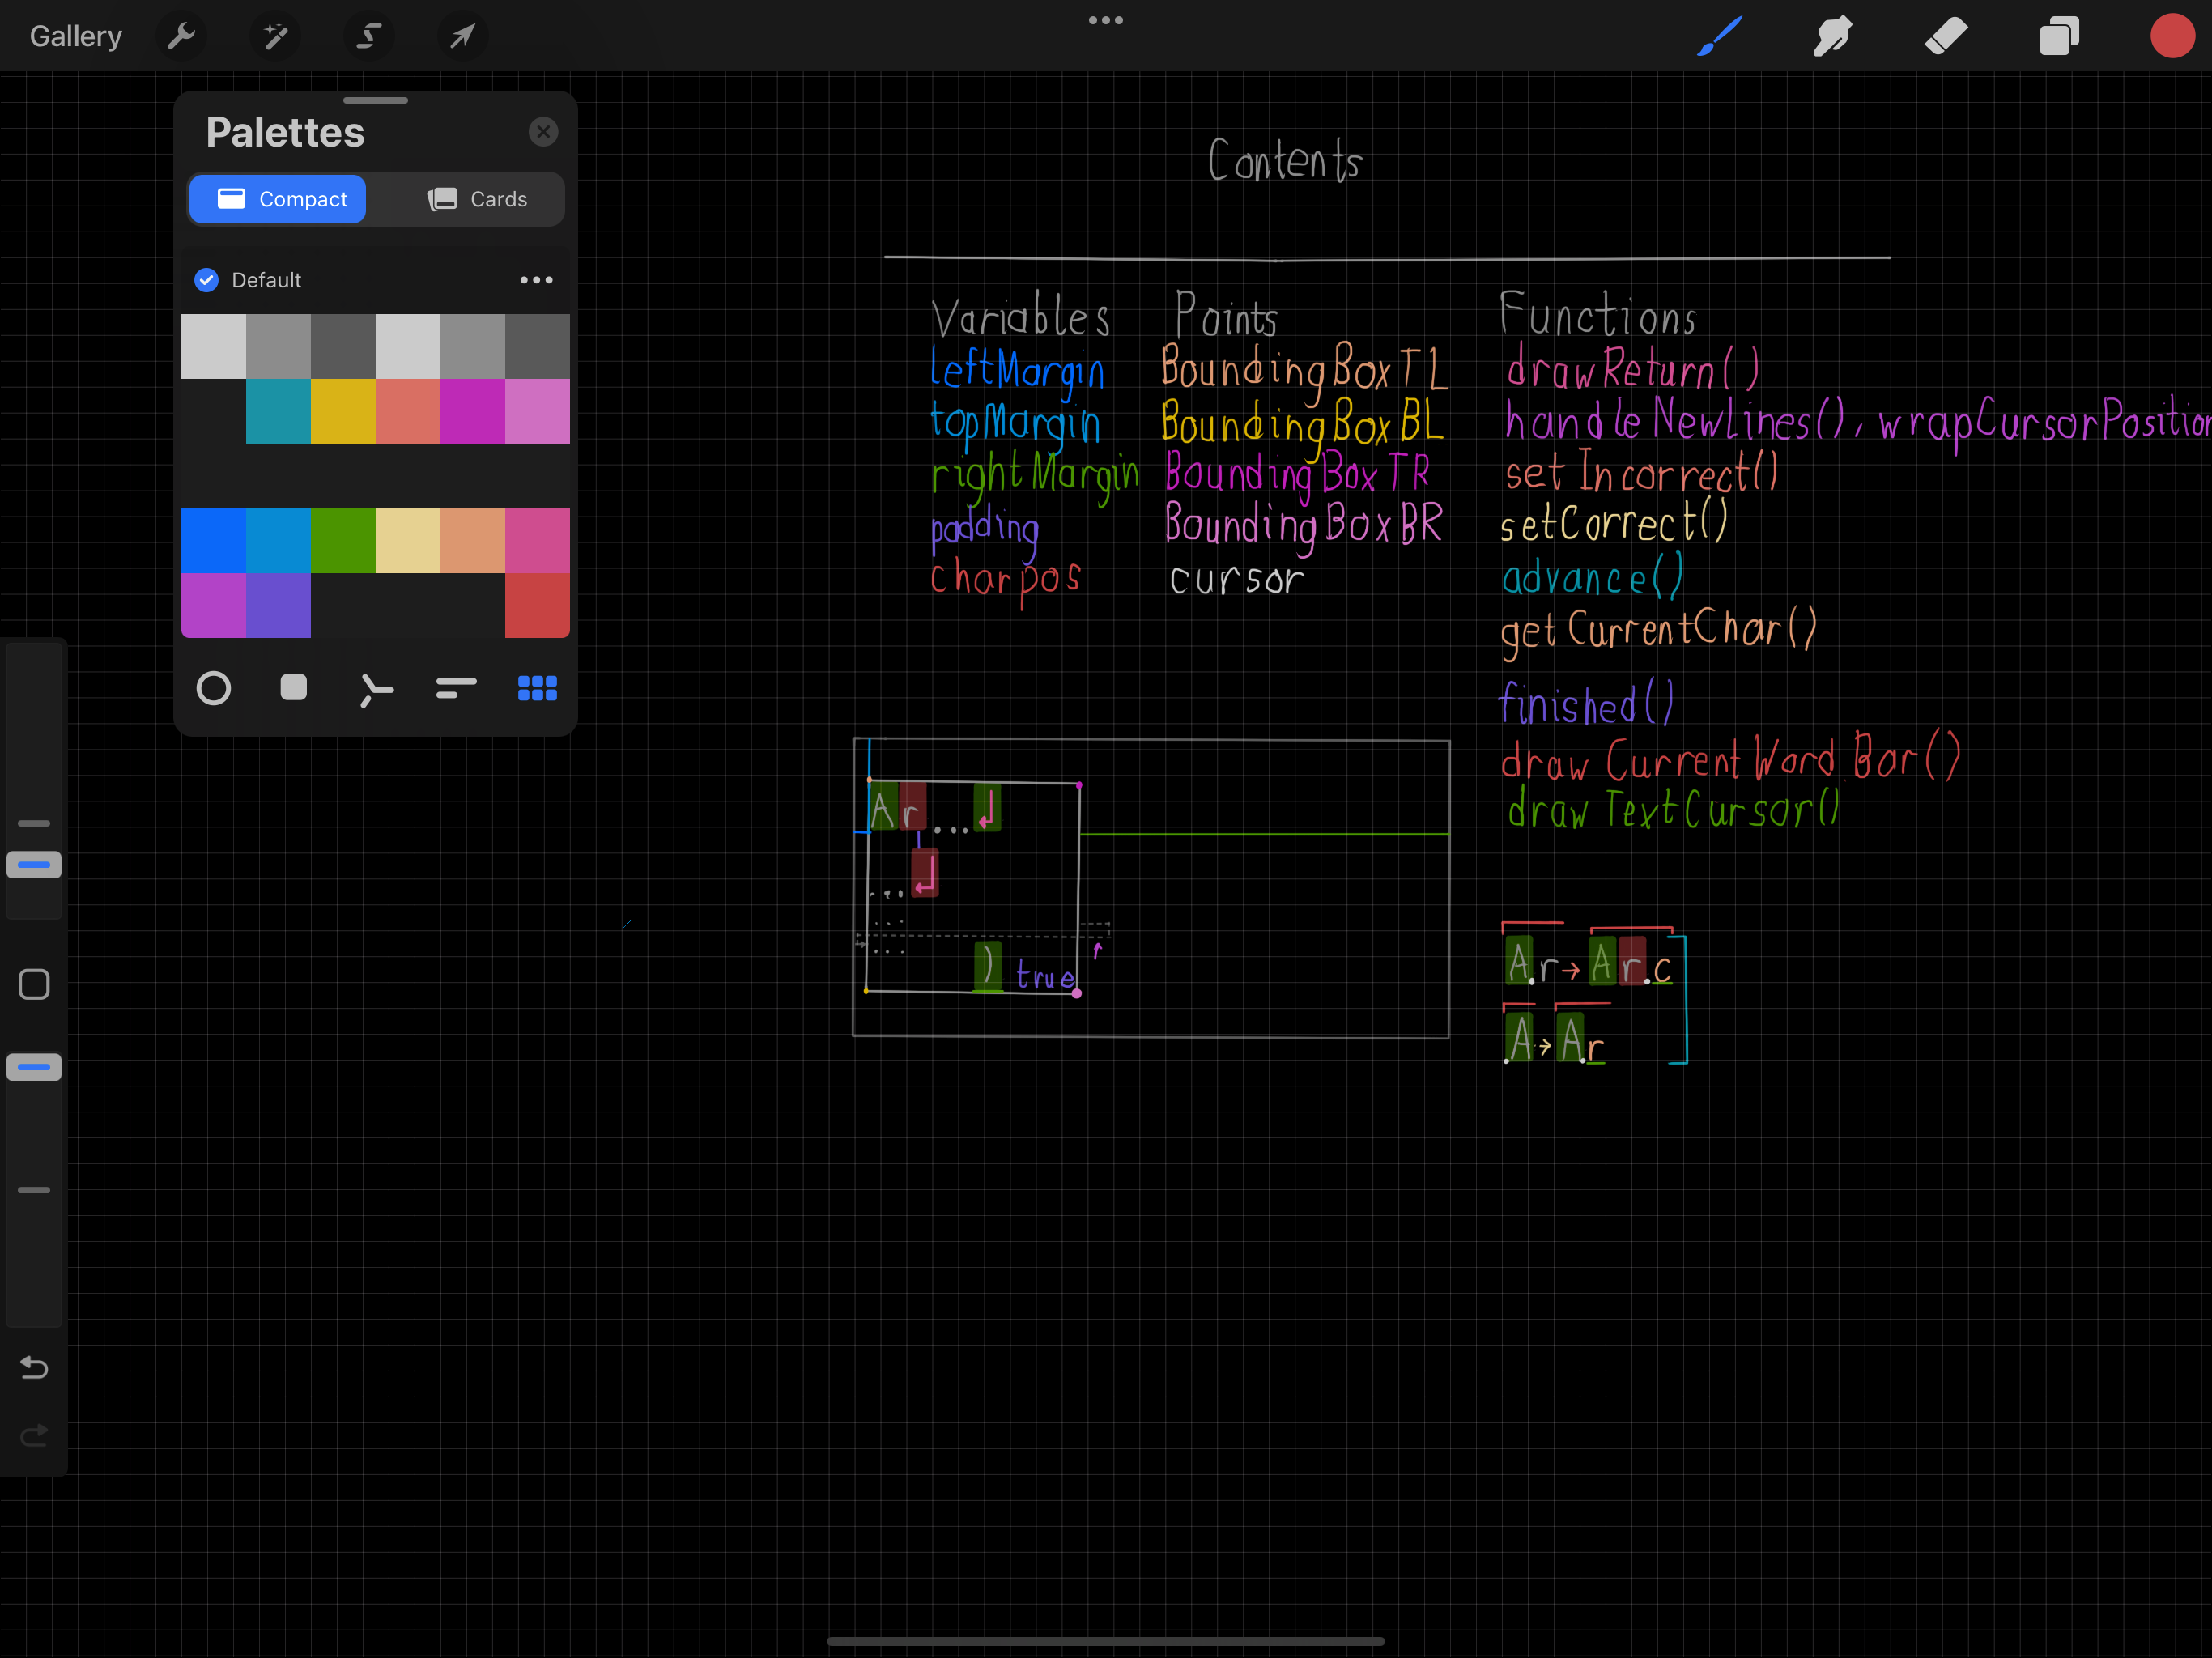 Gallery
Palettes
Compact
Cards
Default
Contents
Variables
leftMargin
topMargin
rightMargin
padding
charpos
Points
BoundingBoxTL
BoundingBoxBL
BoundingBoxTR
BoundingBoxBR
cursor
Functions
drawReturn()
handleNewLines(), wrapCursorPosition
setIncorrect()
setCorrect()
advance()
getCurrentChar()
finished()
drawCurrentWordBar()
drawTextCursor()
Ar...↲
...↲
...
...
) true
A.r→Ar.c
.A→A.r